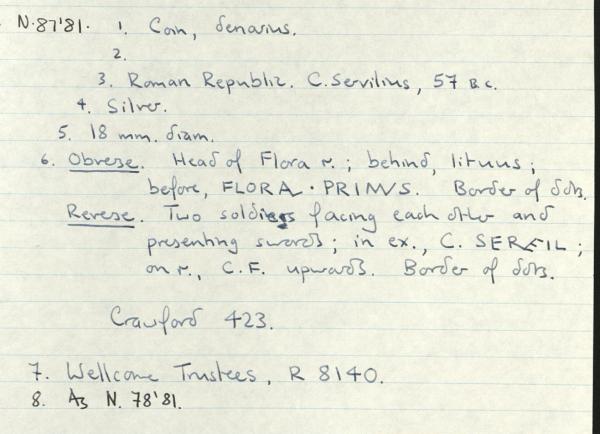 N.87'81. 1. Coin, denarius.
2.
3. Roman Republic. C. Servilius, 57 B.C.
4. Silver.
5. 18 mm. diam.
6. Obverse. Head of Flora r.; behind, lituus;
before, FLORA · PRIMVS. Border of dots.
Reverse. Two soldiers facing each other and
presenting swords; in ex., C. SERVEIL;
on r., C.F. upwards. Border of dots.
Crawford 423.
7. Wellcome Trustees, R 8140.
8. As N. 78'81.